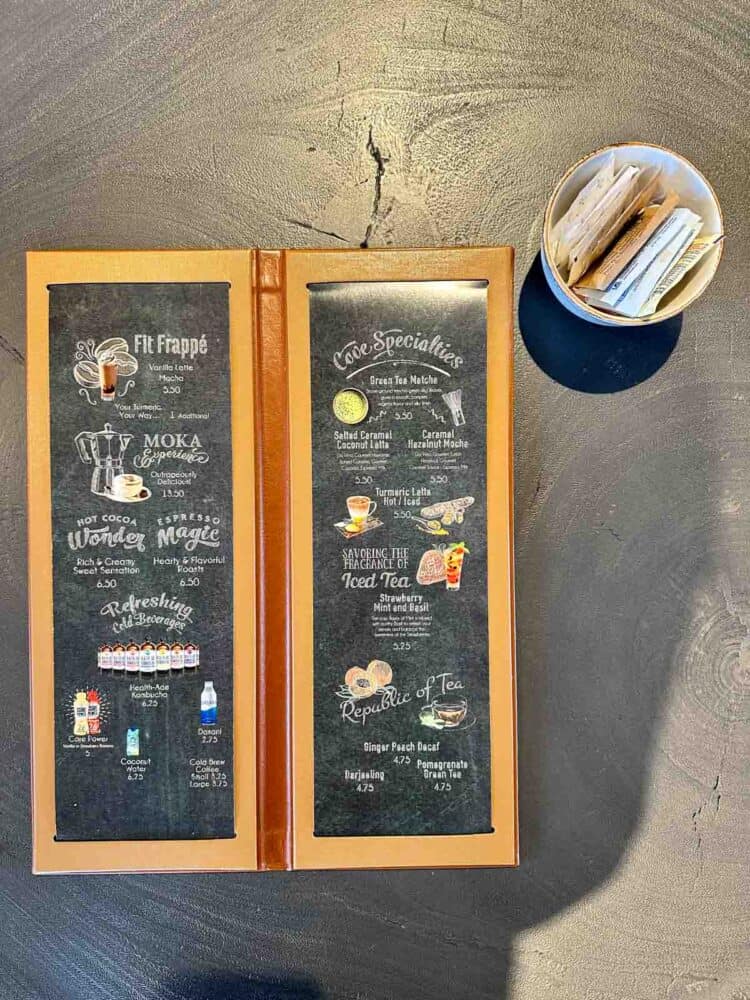 Fit Frappé
Vanilla Latte
Mocha
5.50
Your Turmeric
Your Way... 1 Additional
MOKA
Experience
Outrageously
Delicious!
13.50
HOT COCOA
Wonder
Rich & Creamy
Sweet Sensation
6.50
ESPRESSO
Magic
Hearty & Flavorful
Roasts
6.50
Refreshing
Cold Beverages
Health-Ade
Kombucha
6.25
Core Power
5
Coconut
Water
6.25
Dasani
2.75
Cold Brew
Coffee
Small
Large
Cove Specialties
Green Tea Matcha
5.50
Salted Caramel
Coconut Latte
5.50
Caramel
Hazelnut Mocha
5.50
Turmeric Latte
Hot / Iced
5.50
SAVORING THE
FRAGRANCE OF
Iced Tea
Strawberry
Mint and Basil
5.25
Republic of Tea
Ginger Peach Decaf
4.75
Darjeeling
4.75
Pomegranate
Green Tea
4.75